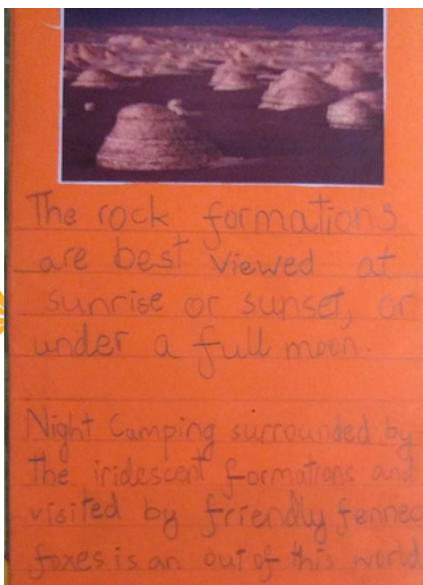 The rock formations
are best viewed at
sunrise or sunset, or
under a full moon.
Night Camping surrounded by
the iridescent formations and
visited by friendly fennec
foxes is an out of this world